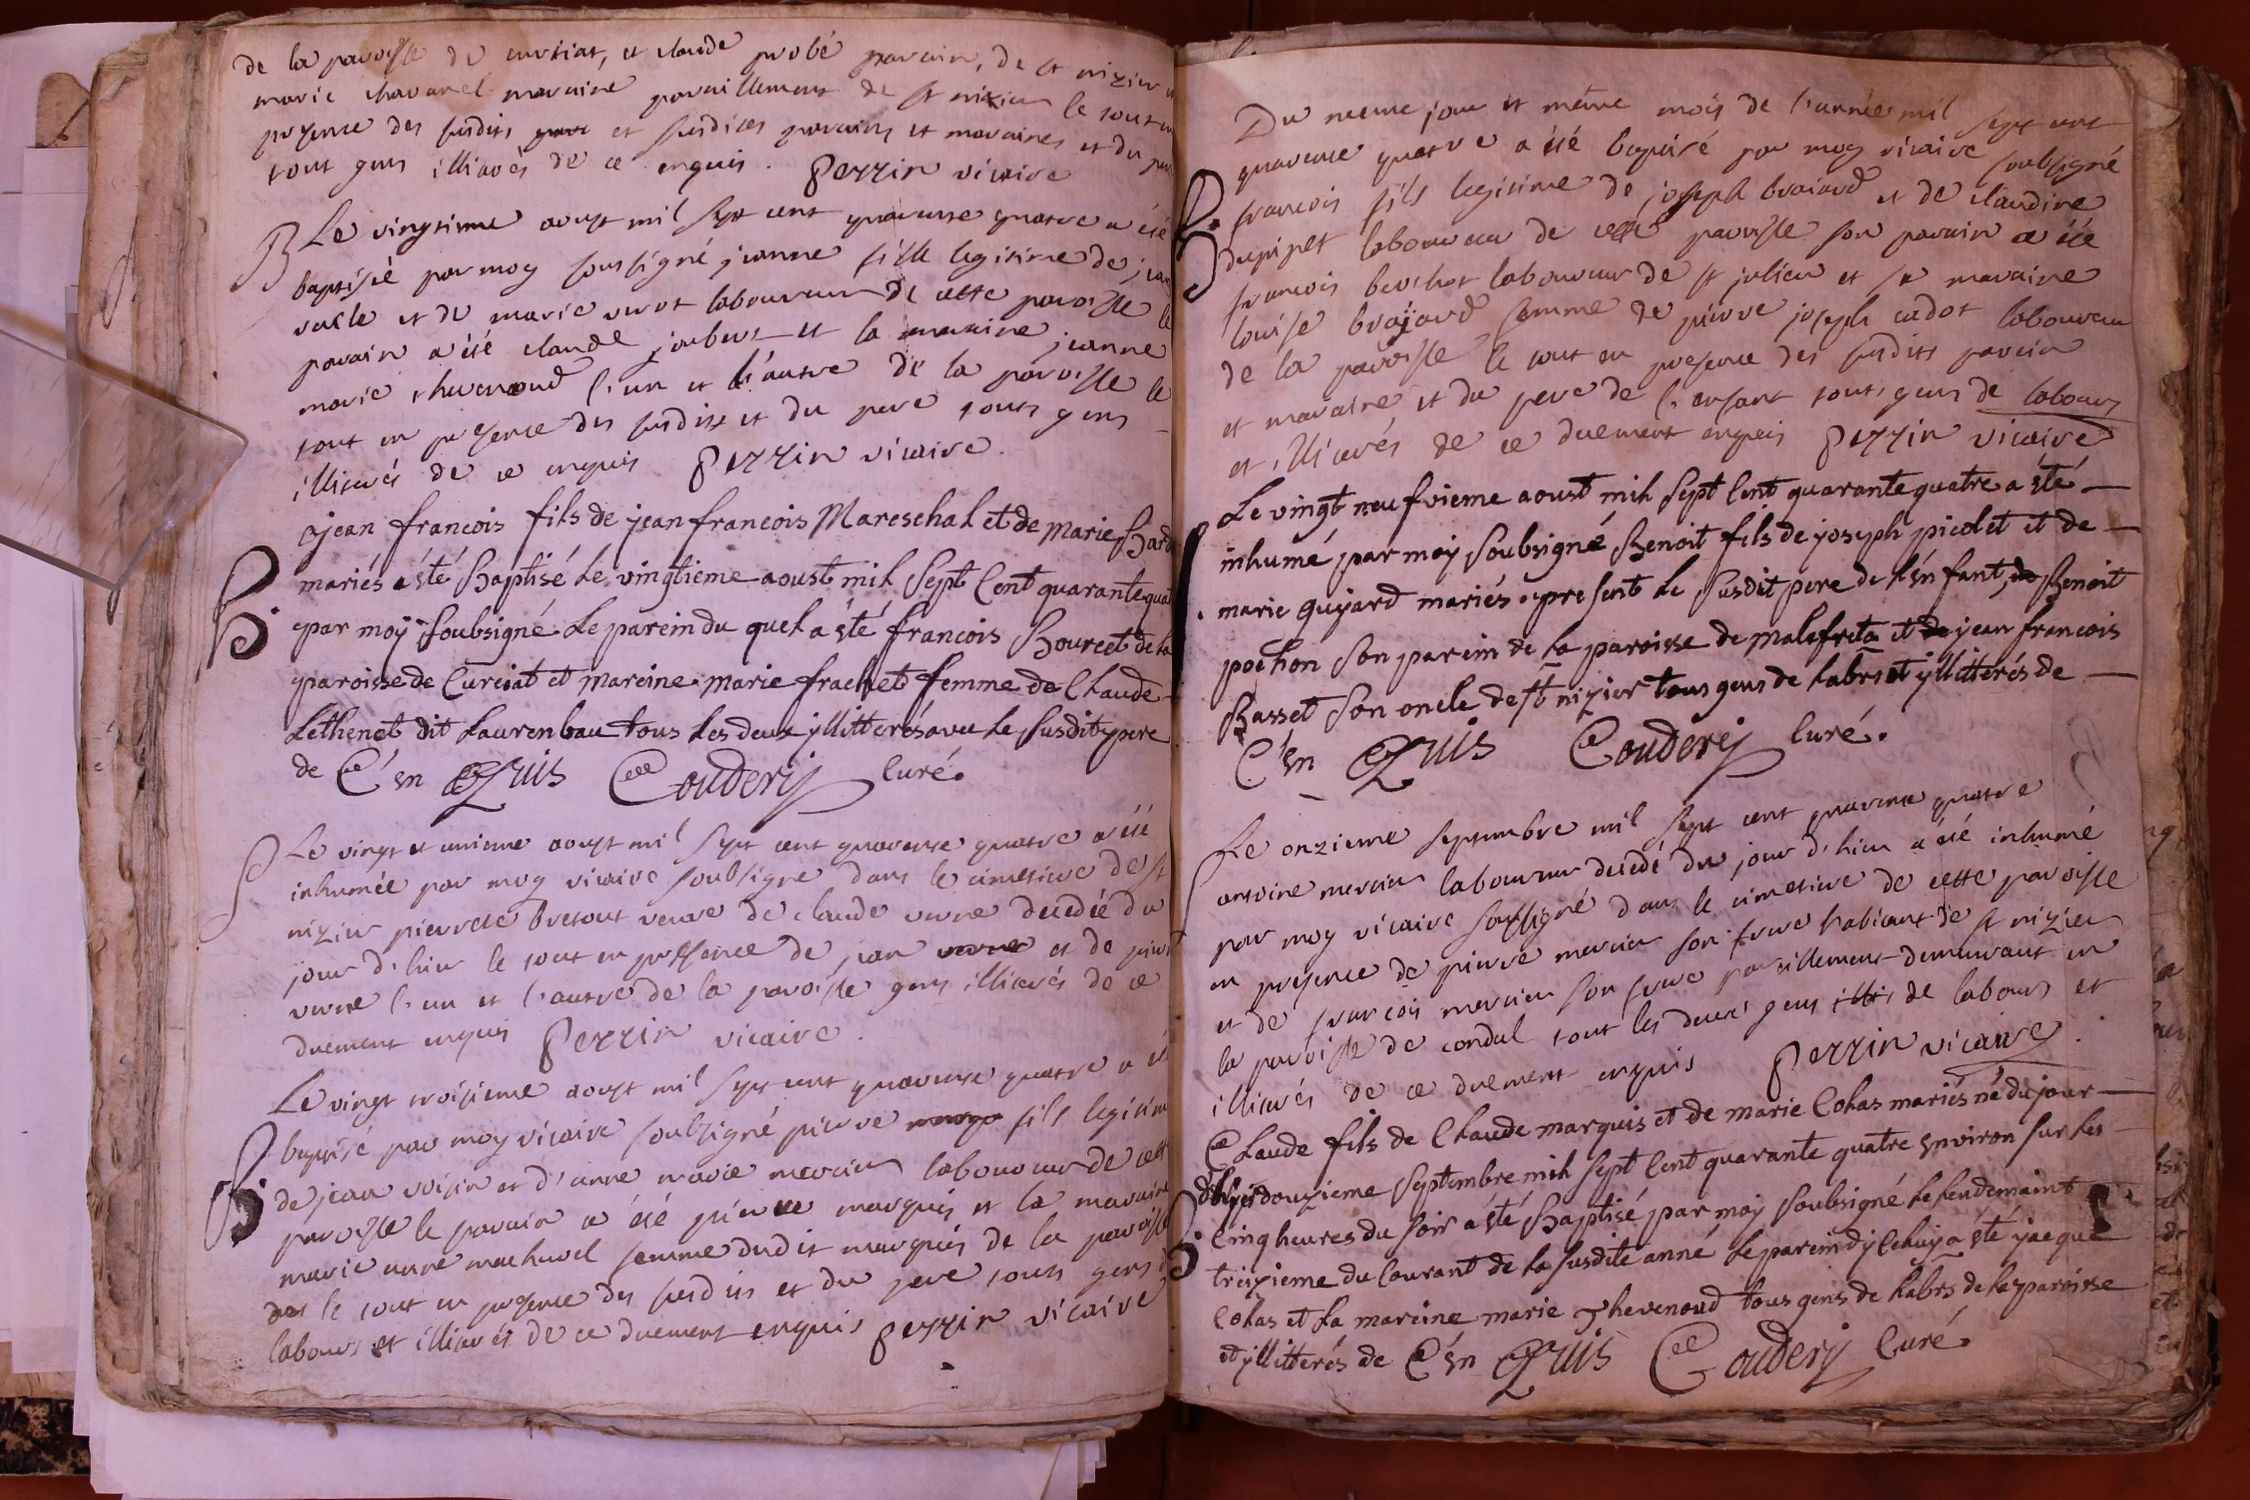 de la paroisse de curtiat, et claude probé parain, de st nizier et
marie chavanel maraine paraillement de st nizier le tout en
presence des susdits et susdites parains et maraines et du pere
tout gens illiterés de ce enquis. Perrin vicaire
B Le vingtieme aoust mil sept cent quarante quatre a été
baptisée par moy soussigné jeanne fille legitime de jean
et de marie laboureur de cette paroisse le
parain a été claude joubert et la maraine jeanne
marie thevenoud l'un et l'autre de la paroisse le
tout en presence des susdits et du pere touts gens
illiterés de ce enquis Perrin vicaire.
B. jean francois fils de jean francois Mareschal et de marie Bard
mariés a été Baptisé le vingtieme aoust mil sept Cent quarante quatre
par moÿ soubsigné le parein du quel a été francois Bourcet de la
paroisse de Curciat et mareine marie frachet femme de Claude
Lethenet dit Laurenbau tous les deux ÿllitterés avec le susdit pere
de Ce én Quis Couderij Curé.
S Le vingt et unieme aoust mil sept cent quarante quatre a été
inhumée par moy vicaire soubsigné dans le cimetiere de st
nizier pierrete bretout veuve de claude verne decedée du
jour d'hier le tout en presence de jean verne et de pierre
verne l'un et l'autre de la paroisse gens illiterés de ce
duement enquis Perrin vicaire.
Le vingt troisieme aoust mil sept cent quarante quatre a été
B. baptisé par moy vicaire soubsigné pierre fils legitime
de jean voisin et d'anne marie mercier laboureur de cette
paroisse le parain a été pierre marquis et la maraine
marie anne machurel femme dudit marquis de la paroisse
le tout en presence des susdits et du pere touts gens de
labours et illiterés de ce duement enquis Perrin vicaire
Du meme jour et même mois de l'année mil sept cent
quarante quatre a été baptisé par moy vicaire soubsigné
B. francois fils legitime de joseph braiard et de claudine
dupuget laboureur de cette paroisse son parain a été
francois berthot laboureur de st julien et sa maraine
louise brajard femme de pierre joseph cadot laboureur
de la paroisse le tout en presence des susdits parain
et maraine et du pere de l'enfant touts gens de labours
et illiterés de ce duement enquis Perrin vicaire
Le vingt neufvieme aoust mil sept Cent quarante quatre a été
inhumé par moÿ soubsigné Benoit fils de joseph picolet et de
marie guÿard mariés present le susdit pere de l'énfant, de Benoit
pochon son parein de la paroisse de malafreta et de jean francois
Basset son oncle de st nizier tous gens de labrs et ÿllitterés de
C'én Quis Couderij Curé.
S Le onzieme septembre mil sept cent quarante quatre
antoine mercier laboureur decedé du jour d'hier a été inhumé
par moy vicaire soussigné dans le cimetiere de cette paroisse
en presence de pierre mercier son frere habitant de st nizier
et de francois mercier son frere paraillement demeurant en
la paroisse de condal tout les deux gens de labours et
illiterés de ce duement enquis Perrin vicaire.
Claude fils de Claude marquis et de marie Colas mariés né du jour
d'hÿer douzieme septembre mil sept Cent quarante quatre énviron sur les
B. Cinq heures du soir a été Baptisé par moÿ soubsigné le lendemaint
treizieme du Courant de la susdite anné le parein d'jCeluÿ a été jacque
Colas et la mareine marie Thevenoud tous gens de labrs de la paroisse
et ÿllitterés de Ce én Quis Couderij Curé.